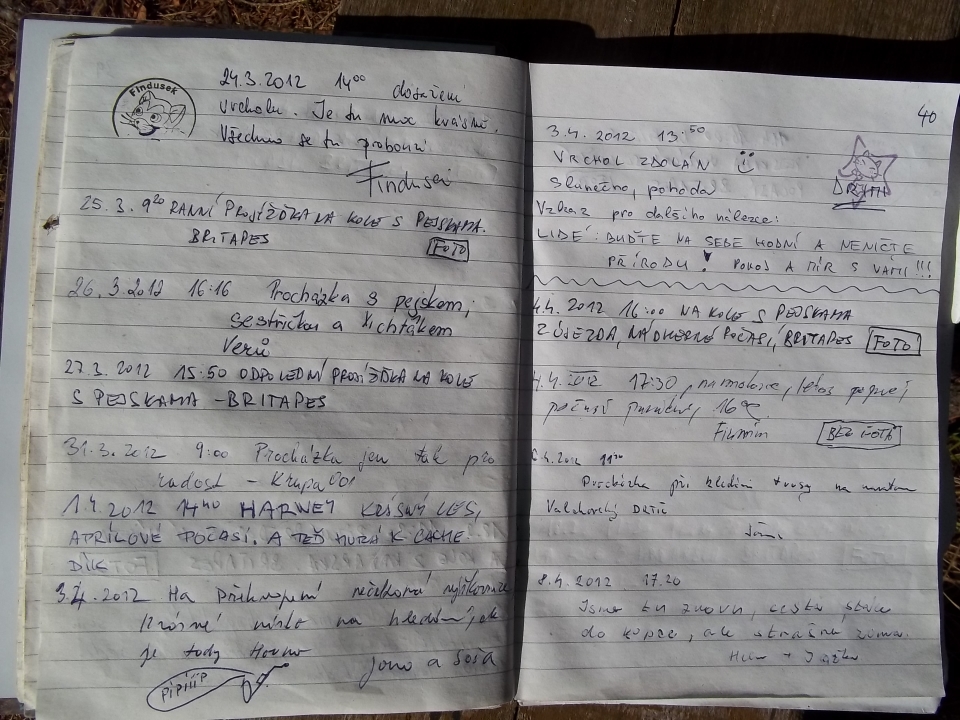 Findusek
24.3.2012 14⁰⁰ dosažení
vrcholu. Je tu moc krásně.
Všechno se tu probouzí
Findusek
25.3. 9²⁰ RANNÍ PROJÍŽĎKA NA KOLE S PEJSKAMA.
BRITAPES FOTO
26.3.2012 16:16 Procházka s pejskem,
sestřičkou a
Verů
27.3.2012 15:50 ODPOLEDNÍ PROJÍŽĎKA NA KOLE
S PEJSKAMA - BRITAPES
31.3.2012 9:00 Procházka jen tak pro
radost - Krupa001
1.4.2012 14⁴⁰ HARWEY KRÁSNÝ LES,
APRÍLOVÉ POČASÍ. A TEĎ HURÁ K CACHE.
DÍK
3.4.2012 Na
Krásné místo na hledání, ale
je tady
Jono a Soša
pípííp
40
3.4.2012 13:50
VRCHOL ZDOLÁN
Slunečno, pohoda
DRIM
Vzkaz pro dalšího nálezce:
LIDÉ: BUĎTE NA SEBE HODNÍ A NENIČTE
PŘÍRODU! POKOJ A MÍR S VÁMI!!!
4.4.2012 16:00 NA KOLE S PEJSKAMA
Z ÚJEZDA, NÁDHERNÉ POČASÍ, BRITAPES FOTO!
4.4.2012 17:30, letos poprvé,
počasí 16°C
BEZ FOTA
4.2012 11³⁰
Procházka při hledání trasy na
Valahovský DRTIČ
8.4.2012 17.20
Jsme tu znovu, cesta stále
do kopce, ale strašná zima.